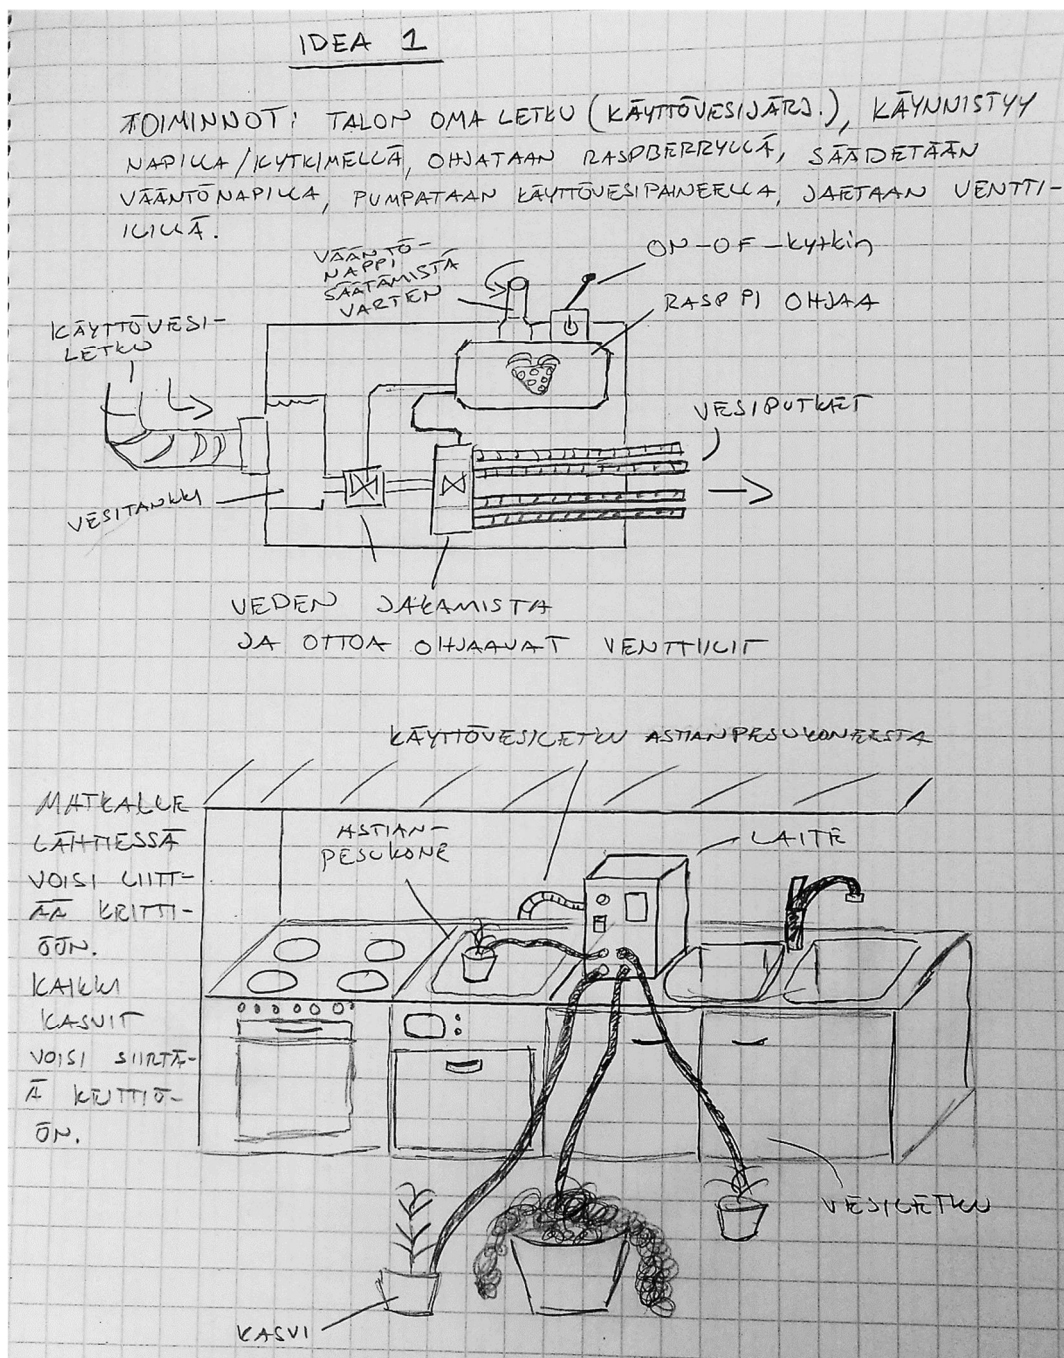 IDEA 1
TOIMINNOT: TALON OMA LETKU (KÄYTTÖVESIJÄRJ.), KÄYNNISTYY
NAPILLA/KYTKIMELLÄ, OHJATAAN RASPBERRYLLÄ, SÄÄDETÄÄN
VÄÄNTÖNAPILLA, PUMPATAAN KÄYTTÖVESIPAINEELLA, JAETAAN VENTTI-
ILILLÄ.
VÄÄNTÖ-
NAPPI
SÄÄTÄMISTÄ
VARTEN
ON-OF-kytkin
RASP PI OHJAA
KÄYTTÖVESI-
LETKU
VESIPUTKET
VESITANKKI
VEDEN JAKAMISTA
JA OTTOA OHJAAVAT VENTTIILIT
KÄYTTÖVESILETKU ASTIANPESUKONEESTA
MATKALLE
LÄHTIESSÄ
VOISI LIITT-
ÄÄ KEITTI-
ÖÖN.
KAIKKI
KASVIT
VOISI SIIRTÄ-
Ä KEITTIÖ-
ÖN.
ASTIAN-
PESUKONE
LAITE
VESILETKU
KASVI